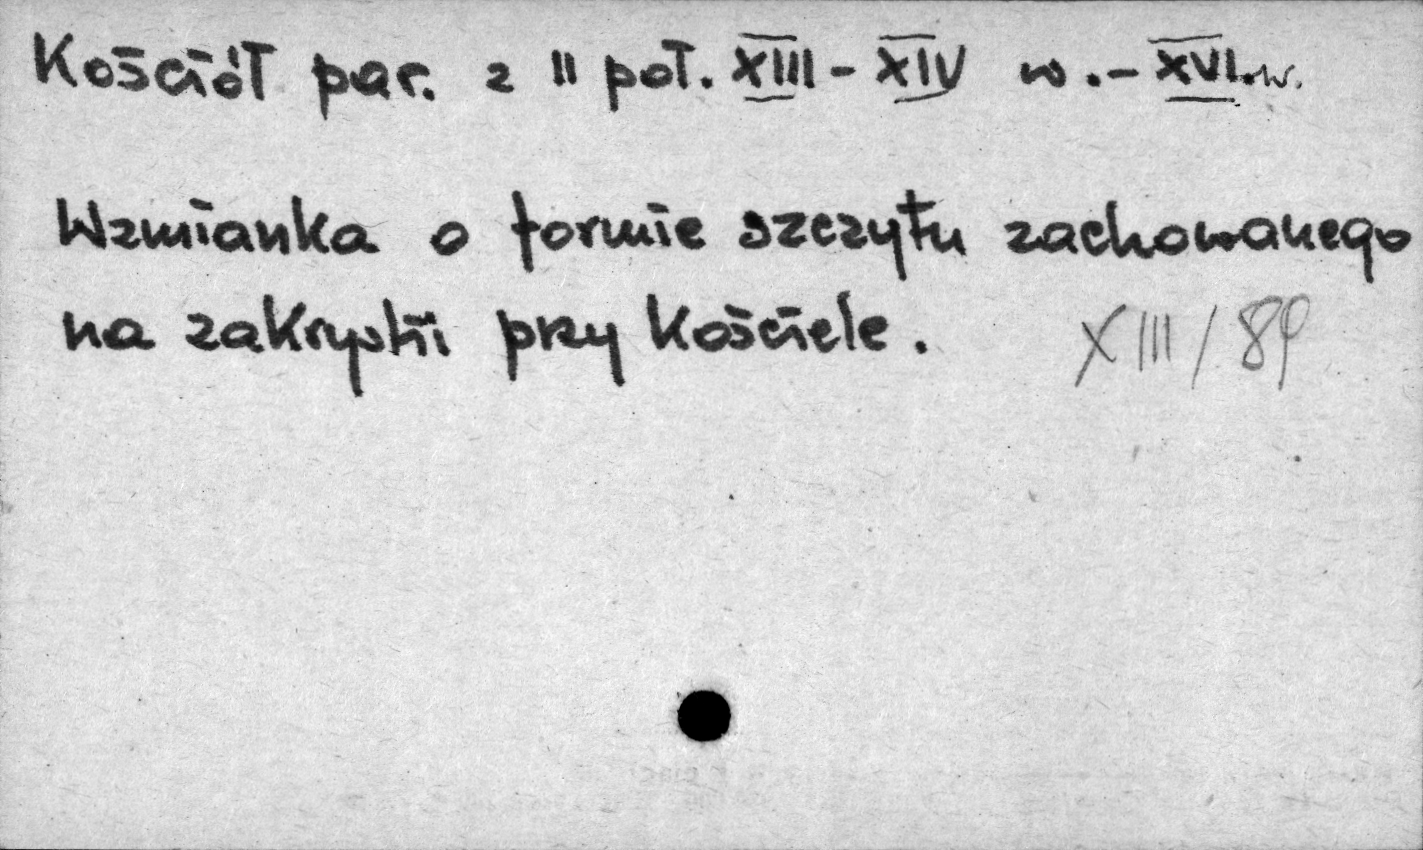 Kościół par. z II poł. XIII - XIV w. - XVI. w.
Wzmianka o formie szczytu zachowanego
na zakrystii przy kościele.
XIII / 89